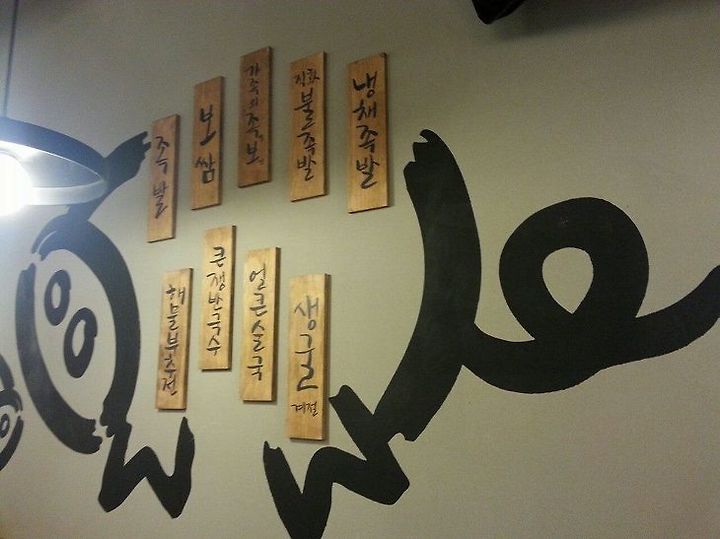 족발
보쌈
가족의 족, 보
직화 불족발
냉채족발
해물부추전
큰쟁반국수
얼큰술국
생굴
계절